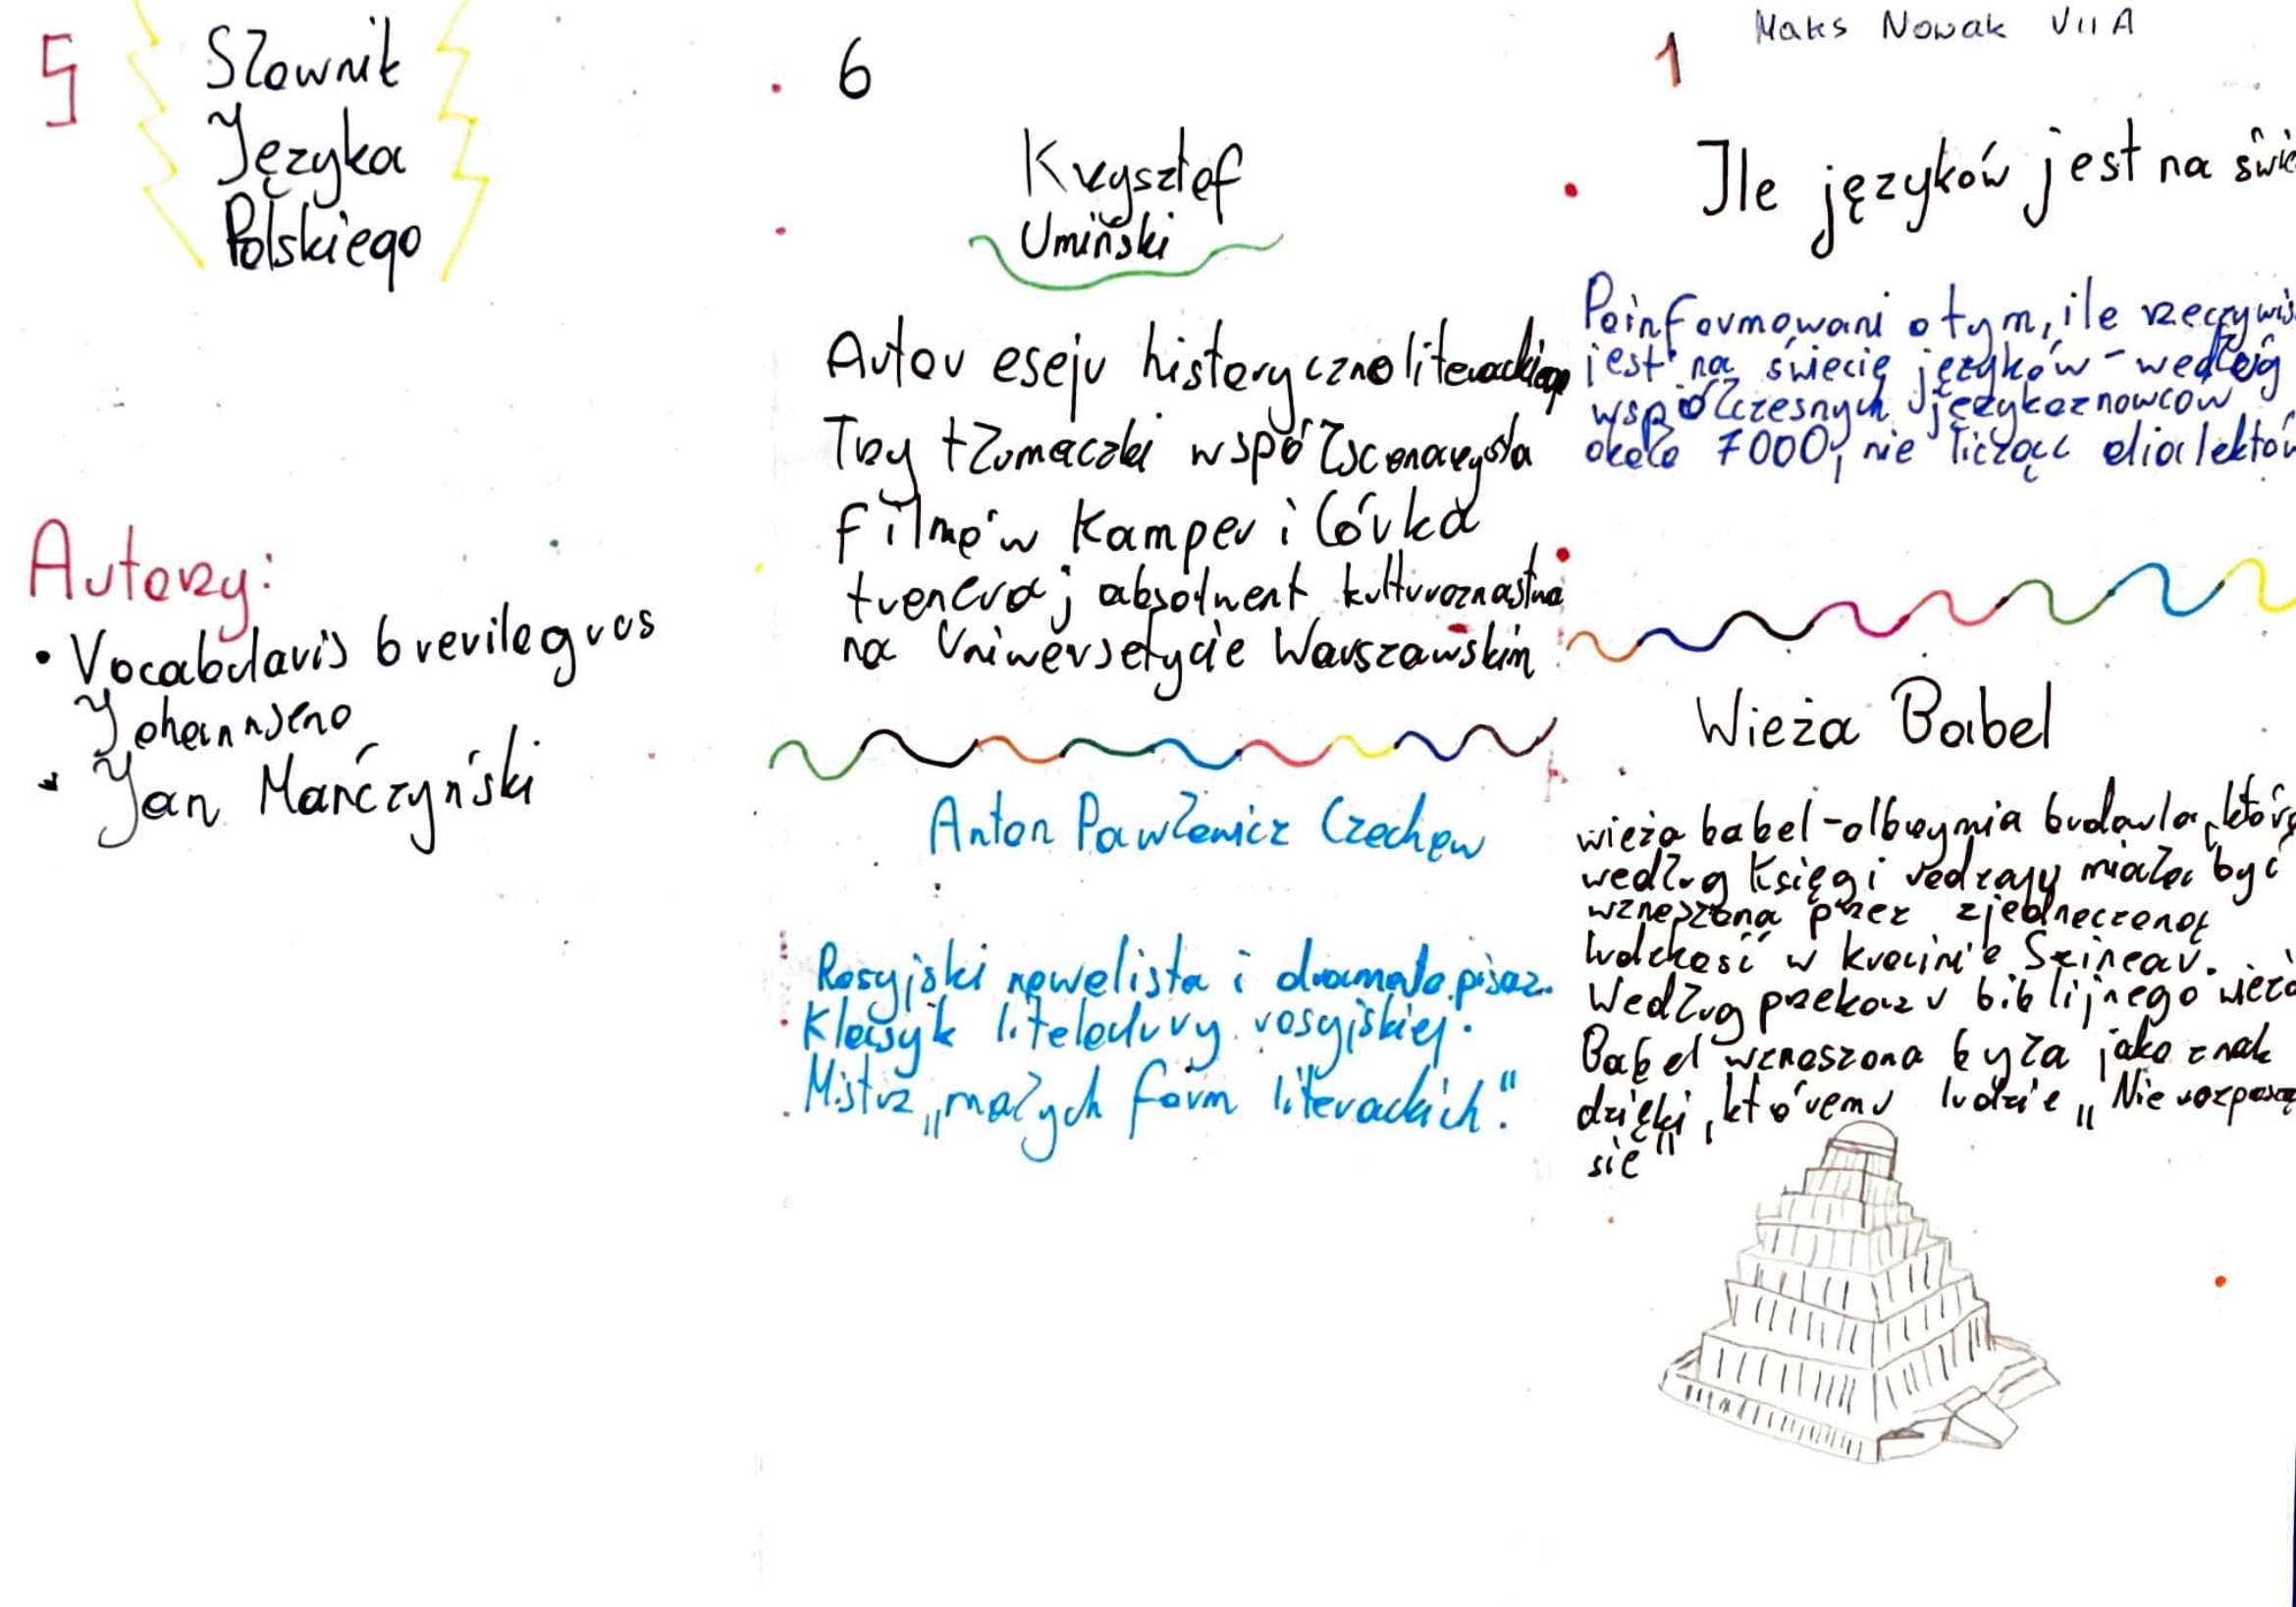 5
Słownik
Języka
Polskiego
Autorzy:
• Vocabularis breviloquus
Johannseno
• Jan Mańczyński
6
Krzysztof
Umiński
Autor eseju historycznoliterackiego
Trzy tłumaczki współscenarzysta
filmów Kamper i Córka
trenera; absolwent kulturoznastwa
na Uniwersetycie Warszawskim
Anton Pawłowicz Czechow
Rosyjski nowelista i dramatopisaz.
Klasyk literatury rosyjskiej.
Mistrz „małych form literackich."
Maks Nowak VII A
1
Ile języków jest na świe
Poinformowani o tym, ile rzeczywis
jest na świecie języków - według
współczesnych językoznowców
około 7000, nie licząc dialektów
Wieża Babel
wieża babel - olbrzymia budowla, która
według Księgi rodzaju miała być
wznoszona przez zjednoczoną
ludzkość w krainie Szinear.
Według przekazu biblijnego wieża
Babel wznoszona była jako znak
dzięki, któremu ludzie „Nie rozproszą
się"